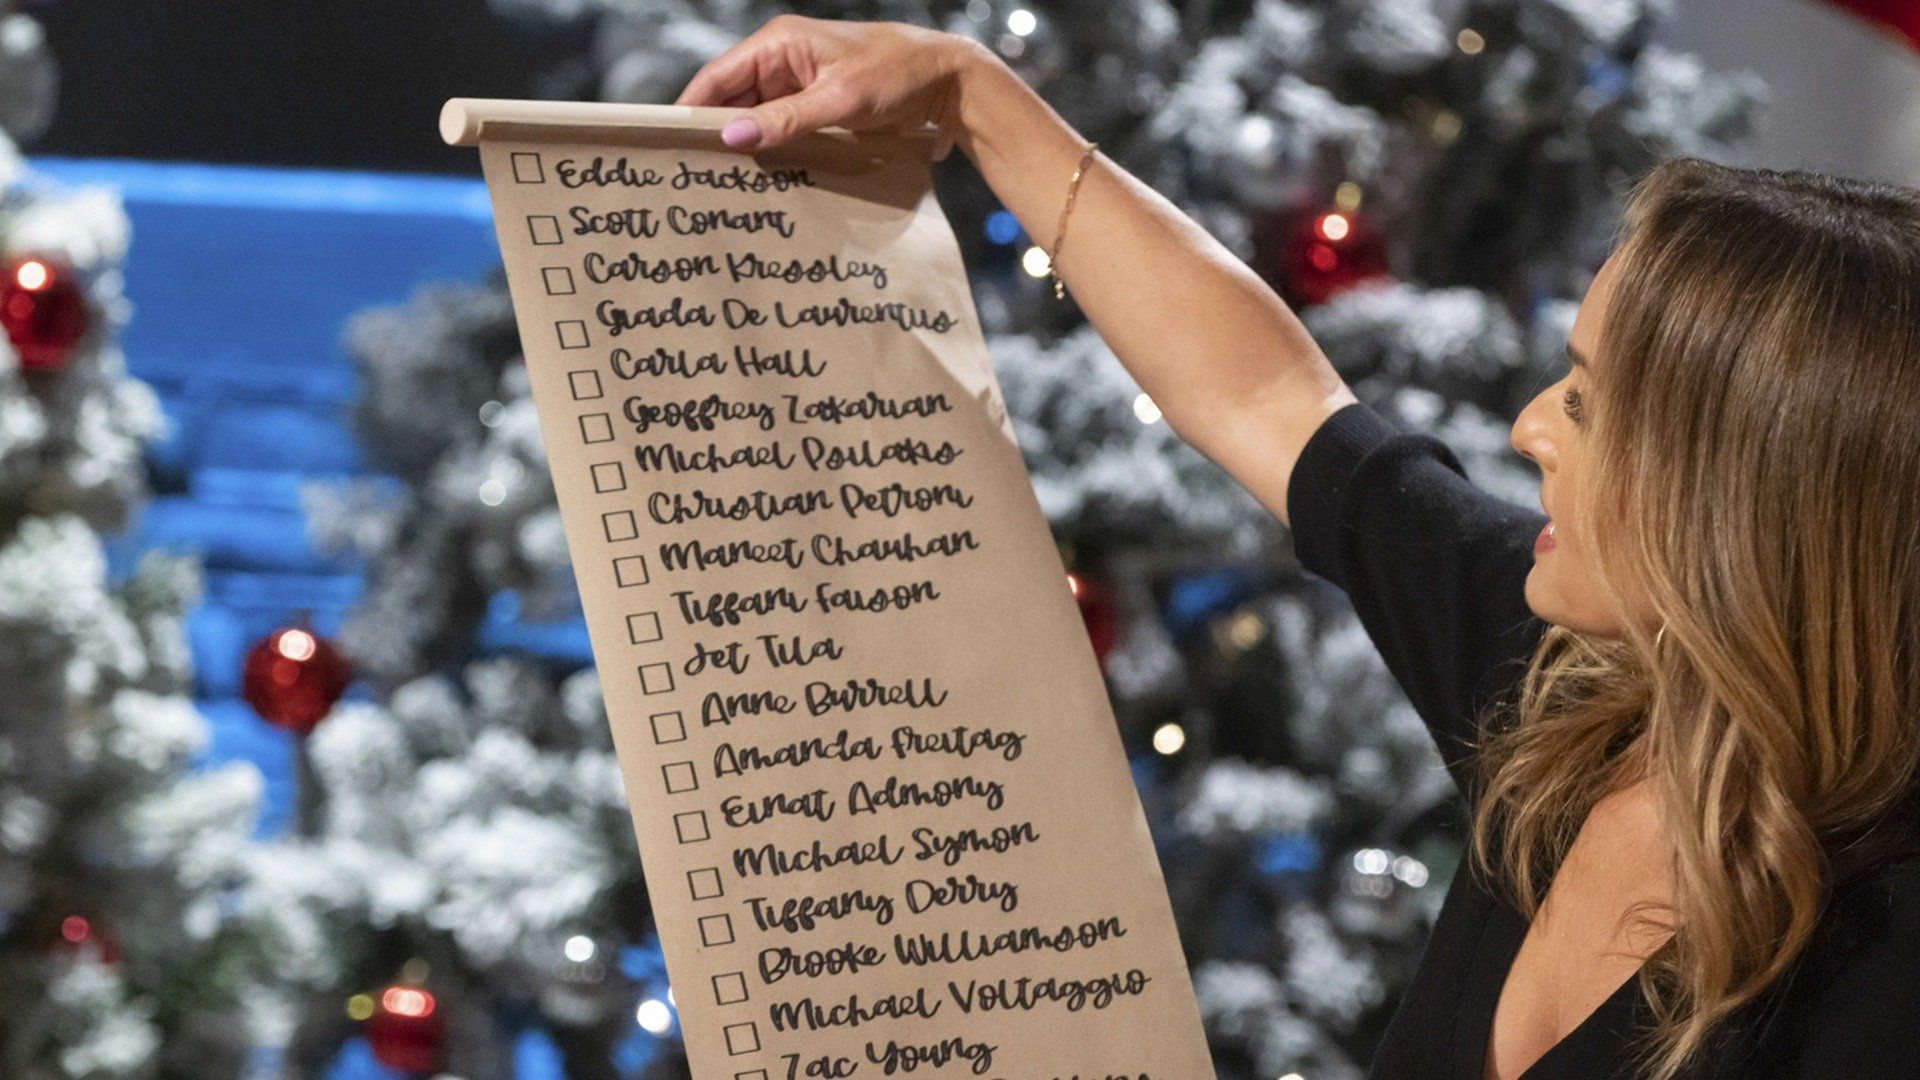 Eddie Jackson
Scott Conant
Carson Kressley
Giada De Laurentus
Carla Hall
Geoffrey Zakarian
Michael Psilakis
Christian Petroni
Maneet Chauhan
Tiffani Faison
Jet Tila
Anne Burrell
Amanda Freitag
Einat Admony
Michael Symon
Tiffany Derry
Brooke Williamson
Michael Voltaggio
Zac Young